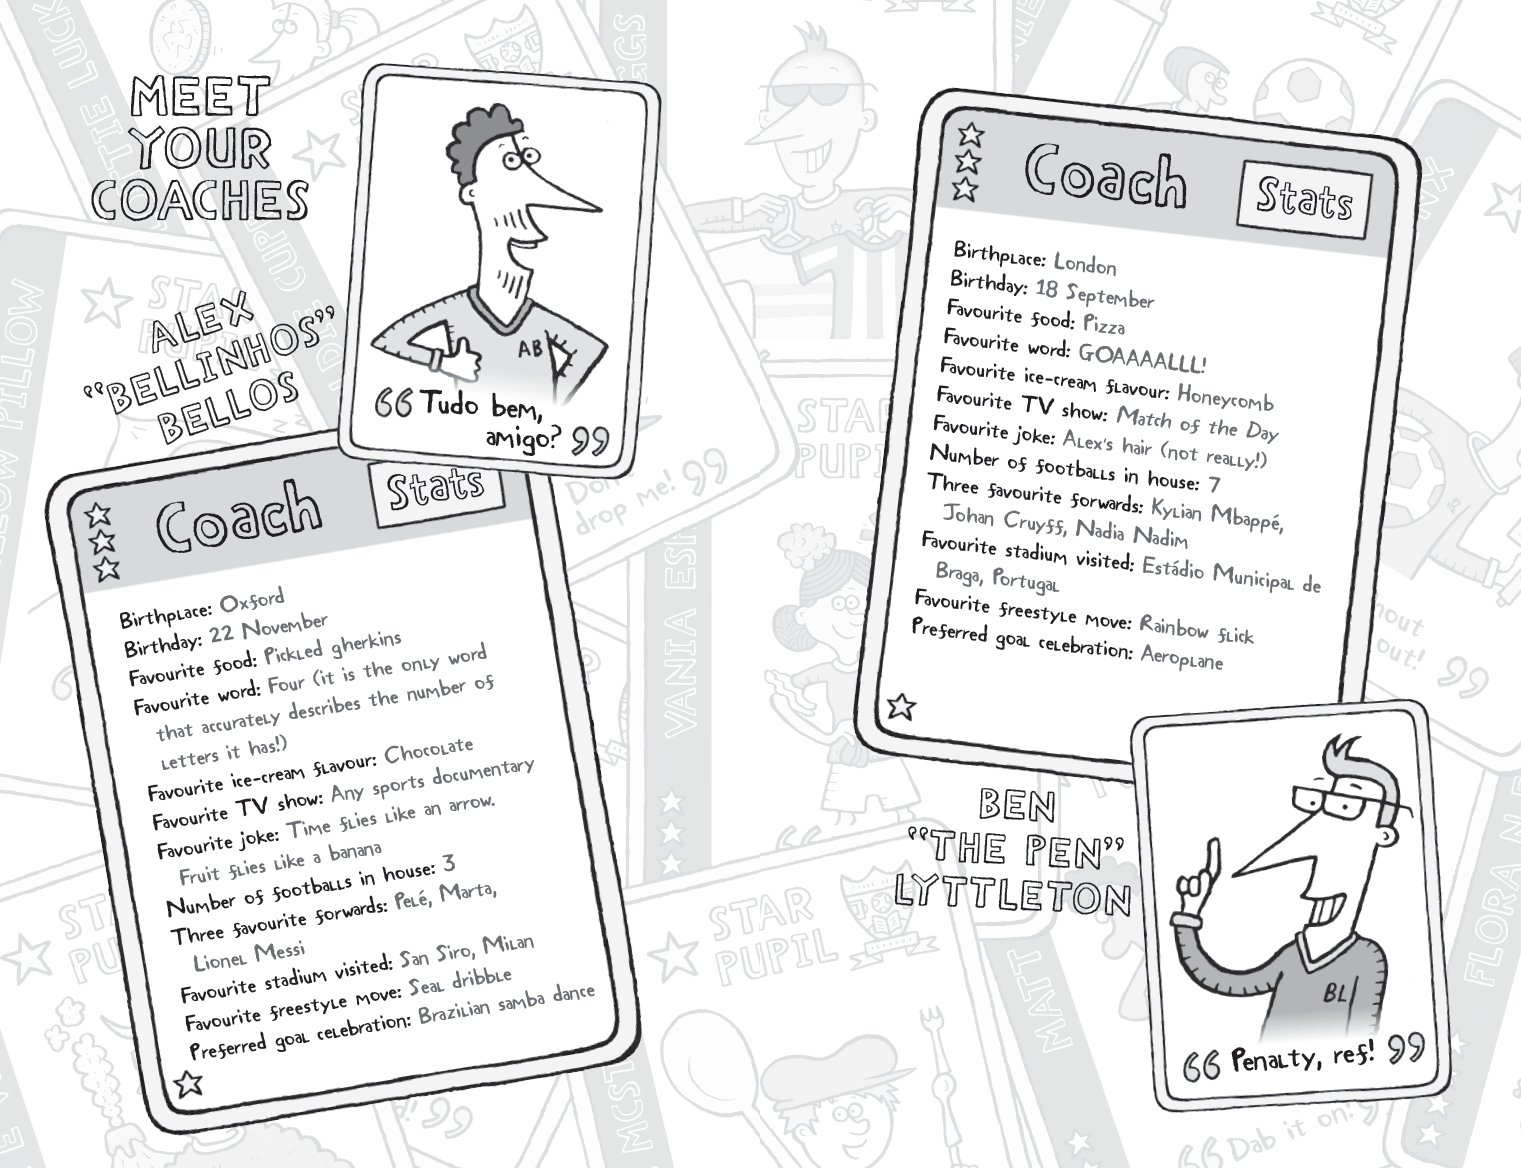 MEET
YOUR
COACHES
ALEX
"BELLINHOS"
BELLOS
AB
“Tudo bem,
amigo?”
Coach
Stats
Birthplace: Oxford
Birthday: 22 November
Favourite food: Pickled gherkins
Favourite word: Four (it is the only word
that accurately describes the number of
letters it has!)
Favourite ice-cream flavour: Chocolate
Favourite TV show: Any sports documentary
Favourite joke: Time flies like an arrow.
Fruit flies like a banana
Number of footballs in house: 3
Three favourite forwards: Pelé, Marta,
Lionel Messi
Favourite stadium visited: San Siro, Milan
Favourite freestyle move: Seal dribble
Preferred goal celebration: Brazilian samba dance
Coach
Stats
Birthplace: London
Birthday: 18 September
Favourite food: Pizza
Favourite word: GOAAAALLL!
Favourite ice-cream flavour: Honeycomb
Favourite TV show: Match of the Day
Favourite joke: Alex's hair (not really!)
Number of footballs in house: 7
Three favourite forwards: Kylian Mbappé,
Johan Cruyff, Nadia Nadim
Favourite stadium visited: Estádio Municipal de
Braga, Portugal
Favourite freestyle move: Rainbow flick
Preferred goal celebration: Aeroplane
BEN
"THE PEN"
LYTTLETON
BL
“Penalty, ref!”
STAR
PUPIL
drop me!”
VANIA
STAR
PUPIL
MATT
FLORA
“Dab it on!”
PILLOW
out!”